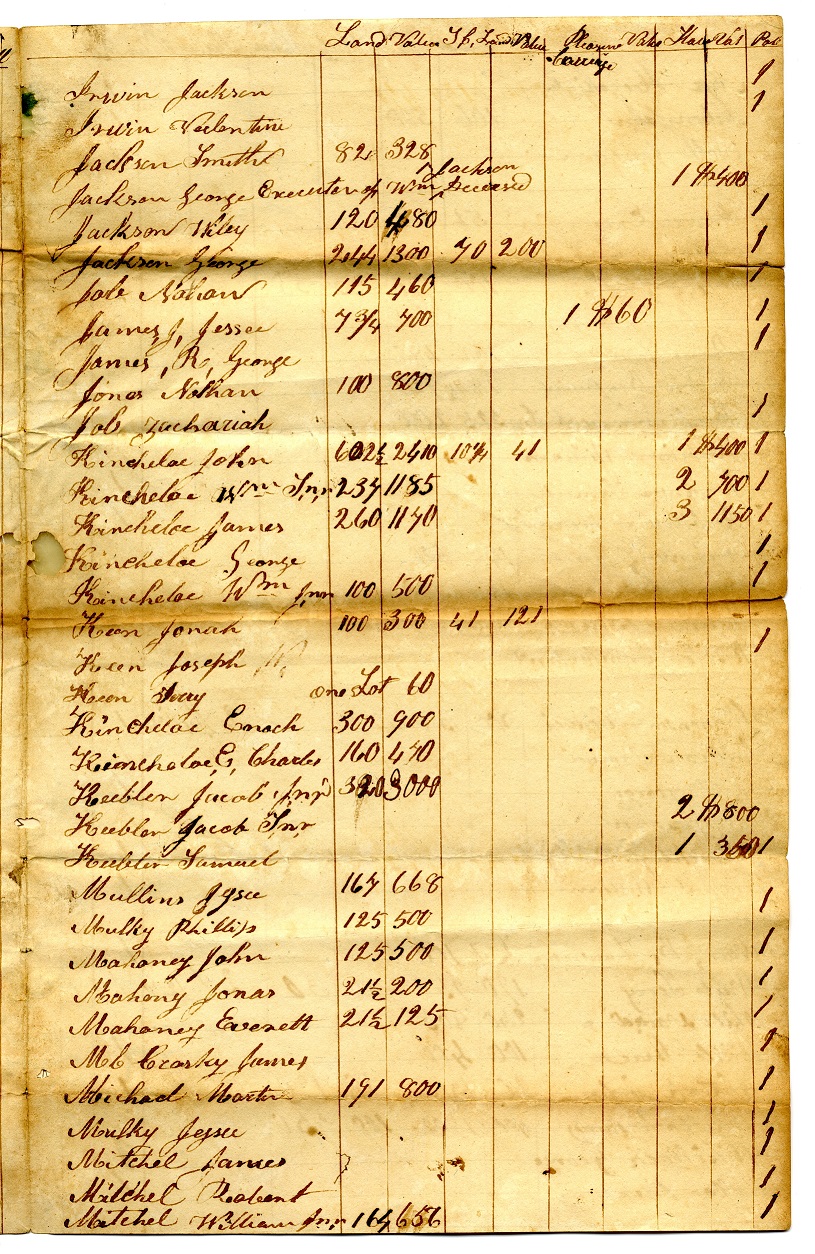 Land Value S,L, Land Value Pleasure Carriage Value Slave Val Pole
Irwin Jackson 1
Irwin Valentine 1
Jackson Smith 82 328
Jackson George Executer of Wm Jackson Deceased 1 $400
Jackson Wiley 120 480 1
Jackson George 244 1300 70 200 1
Job Nathan 115 460 1
James, J, Jessee 7 3/4 700 1 $60 1
James, R, George 1
Jones Nathan 100 800
Job Zachariah 1
Kincheloe John 602 1/2 2410 10 1/4 41 1 $400 1
Kincheloe Wm Snr 237 1185 2 700 1
Kincheloe James 260 1170 3 1150 1
Kincheloe George 1
Kincheloe Wm Jnr 100 500 1
Keen Jonah 100 300 41 121
Keen Joseph 1
Keen one Lot 60
Kincheloe Enoch 300 900
Kincheloe, E, Charles 160 470
Keebler Jacob Jnr 320 3000
Keebler Jacob Snr 2 $800
Keebler Samuel 1 350 1
Mullins Jesse 167 668 1
Mulky Phillip 125 500
Mahoney John 125 500 1
Mahony Jonas 21 1/2 200 1
Mahoney Everett 21 1/2 125 1
Mc Crosky James 1
Michael Martin 191 800 1
Mulky Jesse 1
Mitchel James 1
Mitchel Robert 1
Mitchel William Jnr 164 656 1